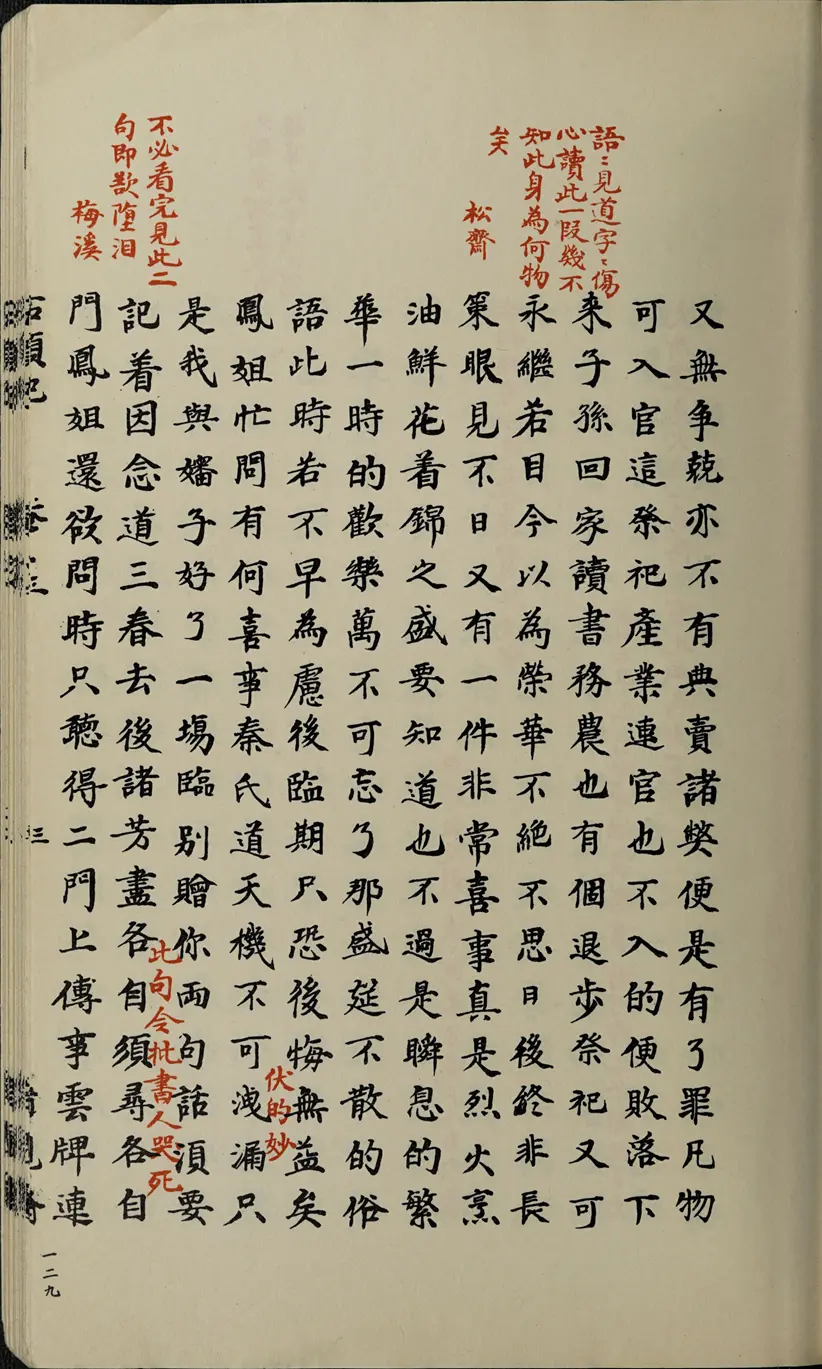 語〻見道字〻傷
心讀此一段幾不
知此身為何物
矣
松齋
不必看完見此二
句即欲墮泪
梅溪
又無爭兢亦不有典賣諸獘便是有了罪凡物
可入官這祭祀產業連官也不入的便敗落下
来子孫回家讀書務農也有個退步祭祀又可
永繼若目今以為榮華不絕不思日後終非長
策眼見不日又有一件非常喜事真是烈火烹
油鮮花着錦之盛要知道也不過是瞬息的繁
華一時的歡樂萬不可忘了那盛筵不散的俗
語此時若不早為慮後臨期只恐後悔無益矣
伏的妙
鳳姐忙問有何喜事秦氏道天機不可洩漏只
是我與嬸子好了一塲臨别贈你両句話湏要
此句令批書人哭死
記着因念道三春去後諸芳盡各自須尋各自
門鳳姐還欲問時只聽得二門上傳事雲牌連
石頭記
三
一二九